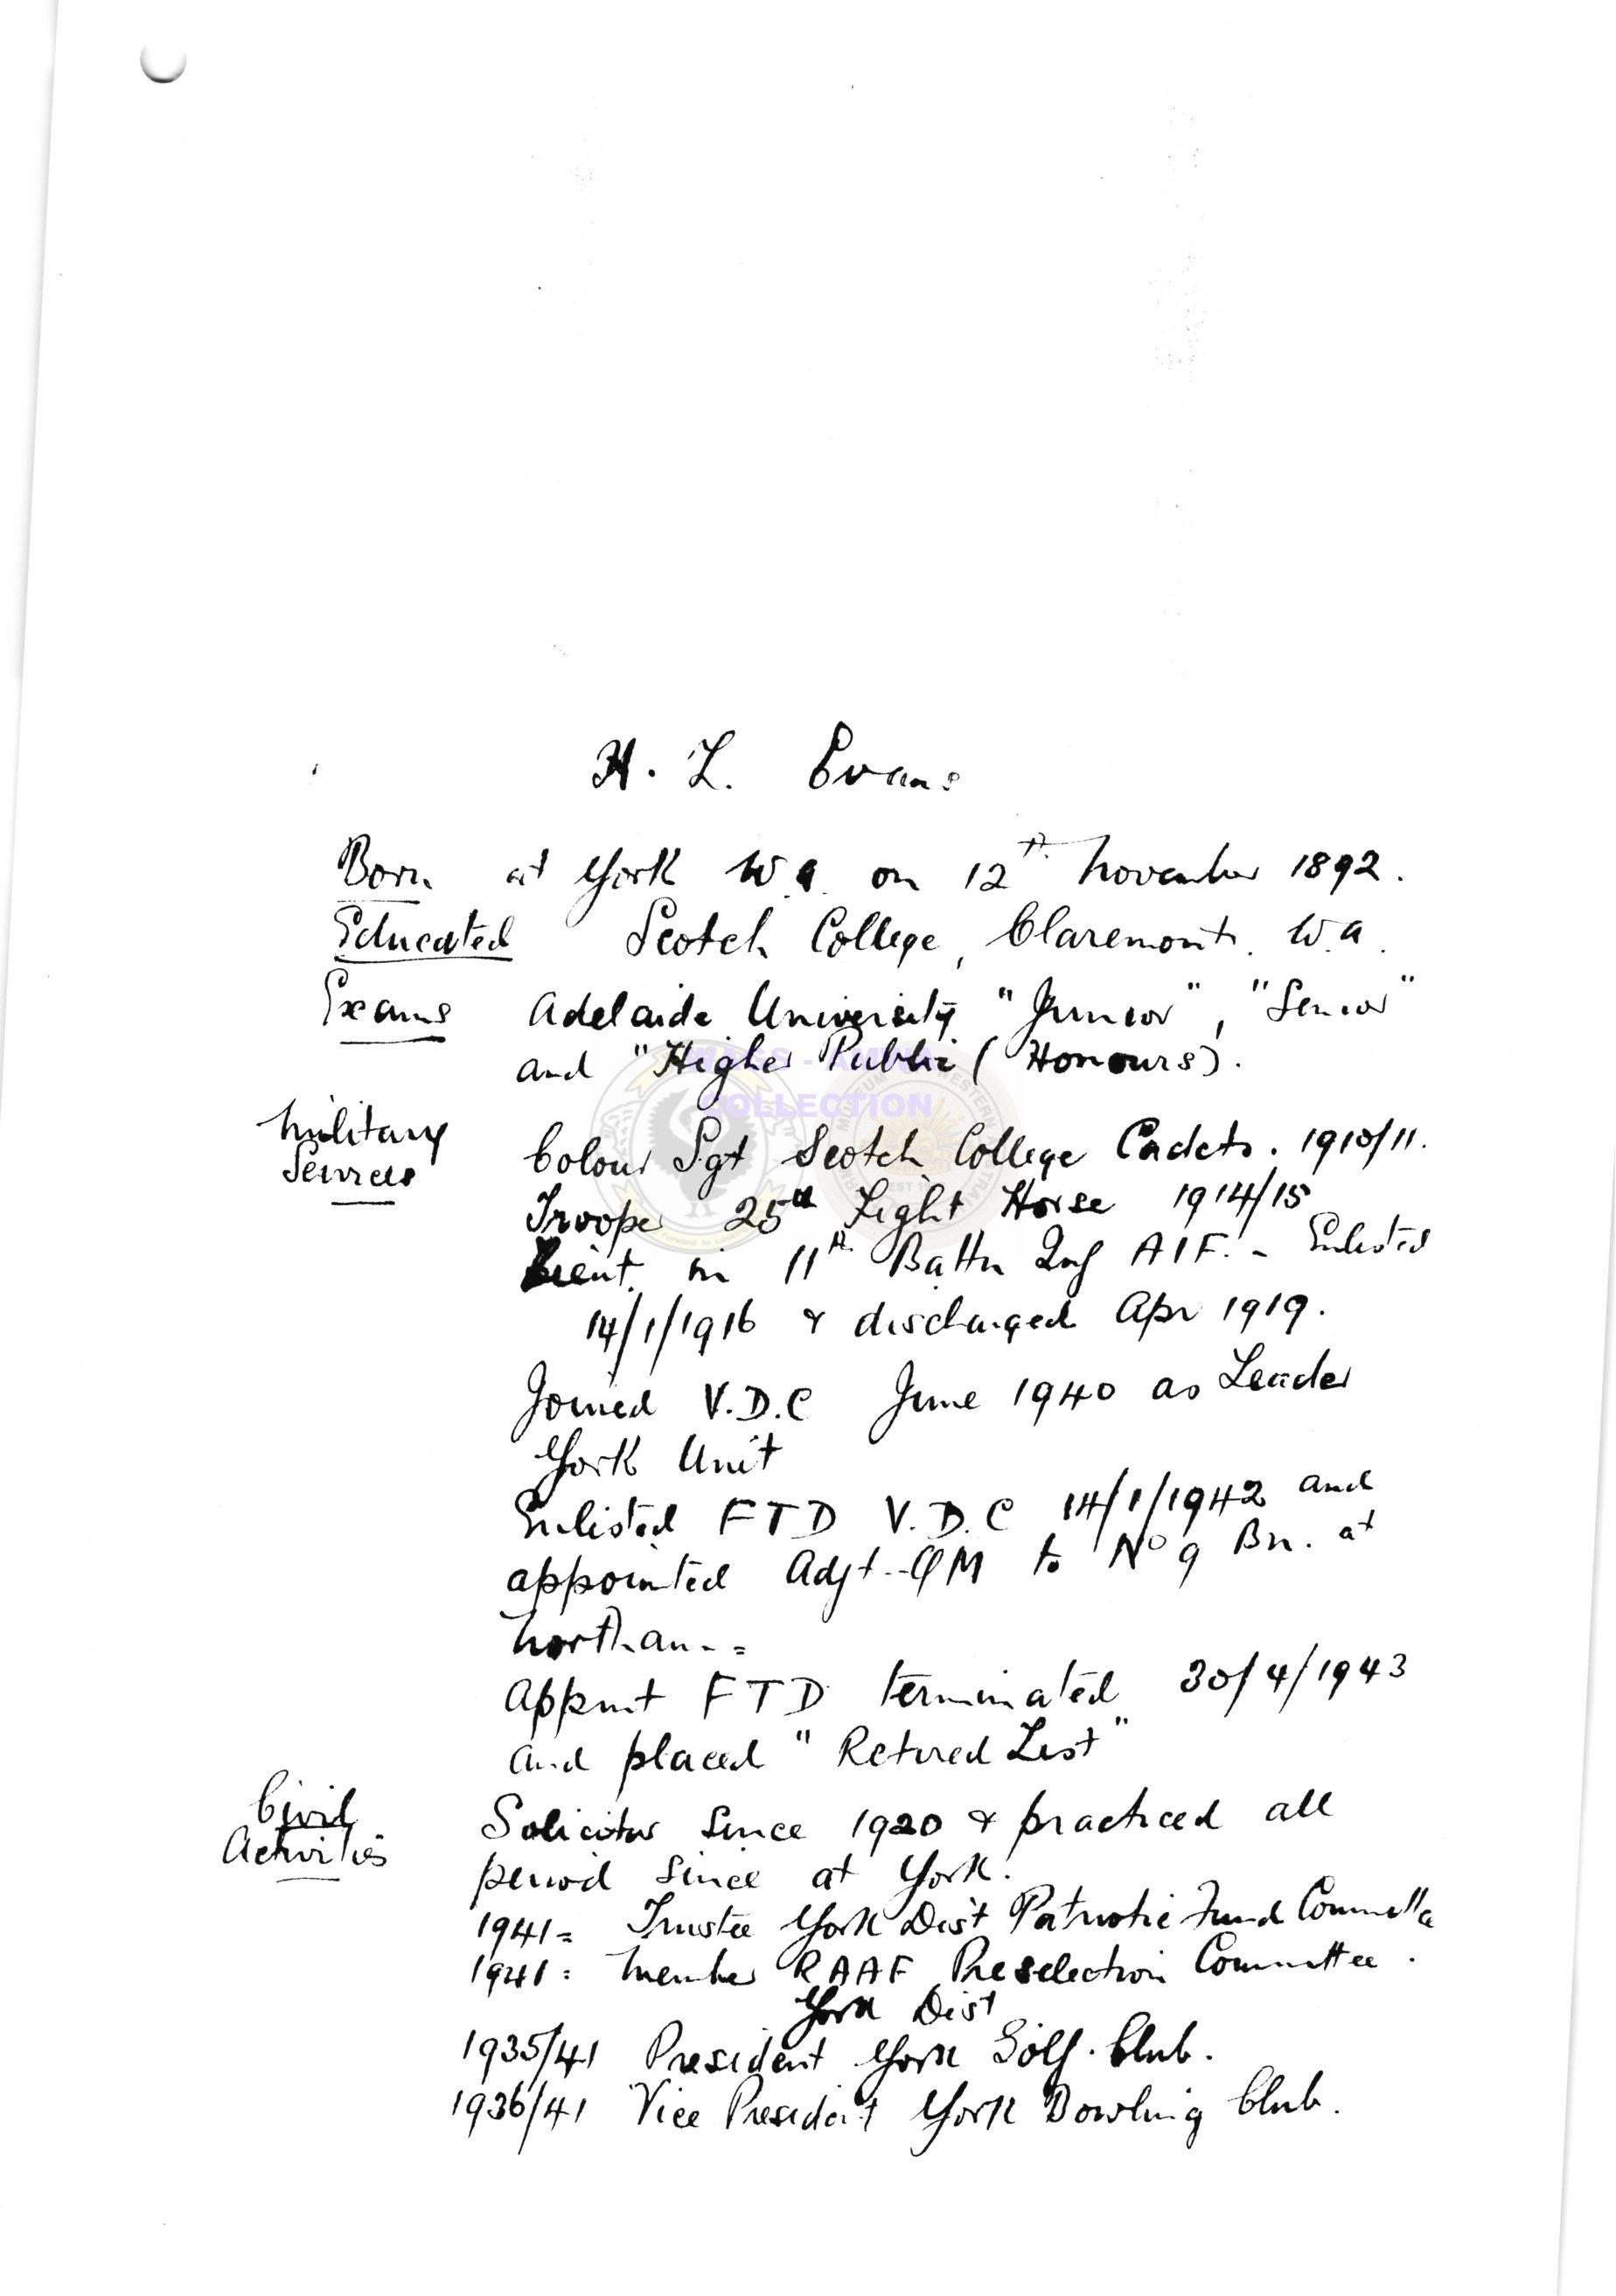 H. L. Evans
Born at York W.A. on 12th November 1892.
Educated Scotch College, Claremont. W.A.
Exams Adelaide University "Junior", "Senior"
and "Higher Public (Honours).
IMAGES - AMWA
COLLECTION
Military
Services
Colour Sgt Scotch College Cadets. 1910/11.
Trooper 25th Light Horse 1914/15
Lieut. in 11th Battn Inf AIF. - Enlisted
14/1/1916 & discharged Apr 1919.
Joined V.D.C June 1940 as Leader
York Unit
Enlisted FTD V.D.C 14/1/1942 and
appointed Adjt.-QM to No 9 Bn. at
Northam.=
Appmt FTD terminated 30/4/1943
and placed "Retired List"
Civil
Activities
Solicitor since 1920 & practiced all
period since at York.
1941= Trustee York Dist Patriotic Fund Committee
1941: Member RAAF Preselection Committee.
York Dist
1935/41 President York Golf. Club.
1936/41 Vice President York Bowling Club.